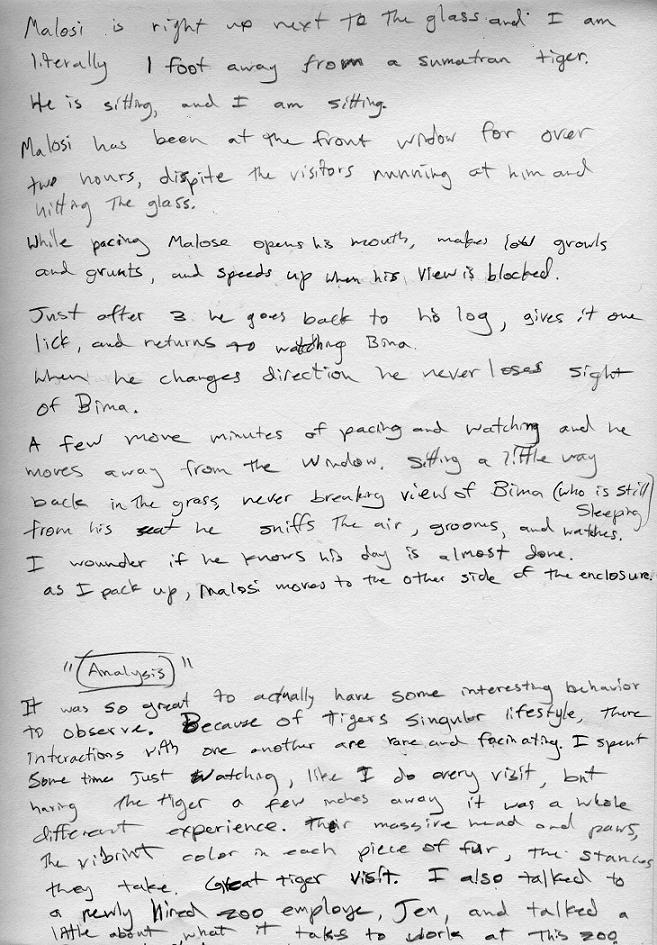 Malosi is right up next to the glass and I am
literally 1 foot away from a sumatran tiger.
He is sitting, and I am sitting.
Malosi has been at the front window for over
two hours, dispite the visitors running at him and
hitting the glass.
While pacing Malose opens his mouth, makes low growls
and grunts, and speeds up when his view is blocked.
Just after 3 he goes back to his log, gives it one
lick, and returns to watching Bima.
When he changes direction he never loses sight
of Bima.
A few more minutes of pacing and watching and he
moves away from the window. Sitting a little way
back in the grass, never breaking view of Bima (who is still
sleeping)
from his seat he sniffs the air, grooms, and watches.
I wounder if he knows his day is almost done.
as I pack up, Malosi moves to the other side of the enclosure.
"Analysis"
It was so great to actually have some interesting behavior
to observe. Because of tigers singular lifestyle, there
interactions with one another are rare and facinating. I spent
some time just watching, like I do every visit, but
having the tiger a few inches away it was a whole
different experience. Their massive head and paws,
the vibrint color in each piece of fur, the stances
they take. Great tiger visit. I also talked to
a newly hired zoo employe, Jen, and talked a
little about what it taks to work at this zoo